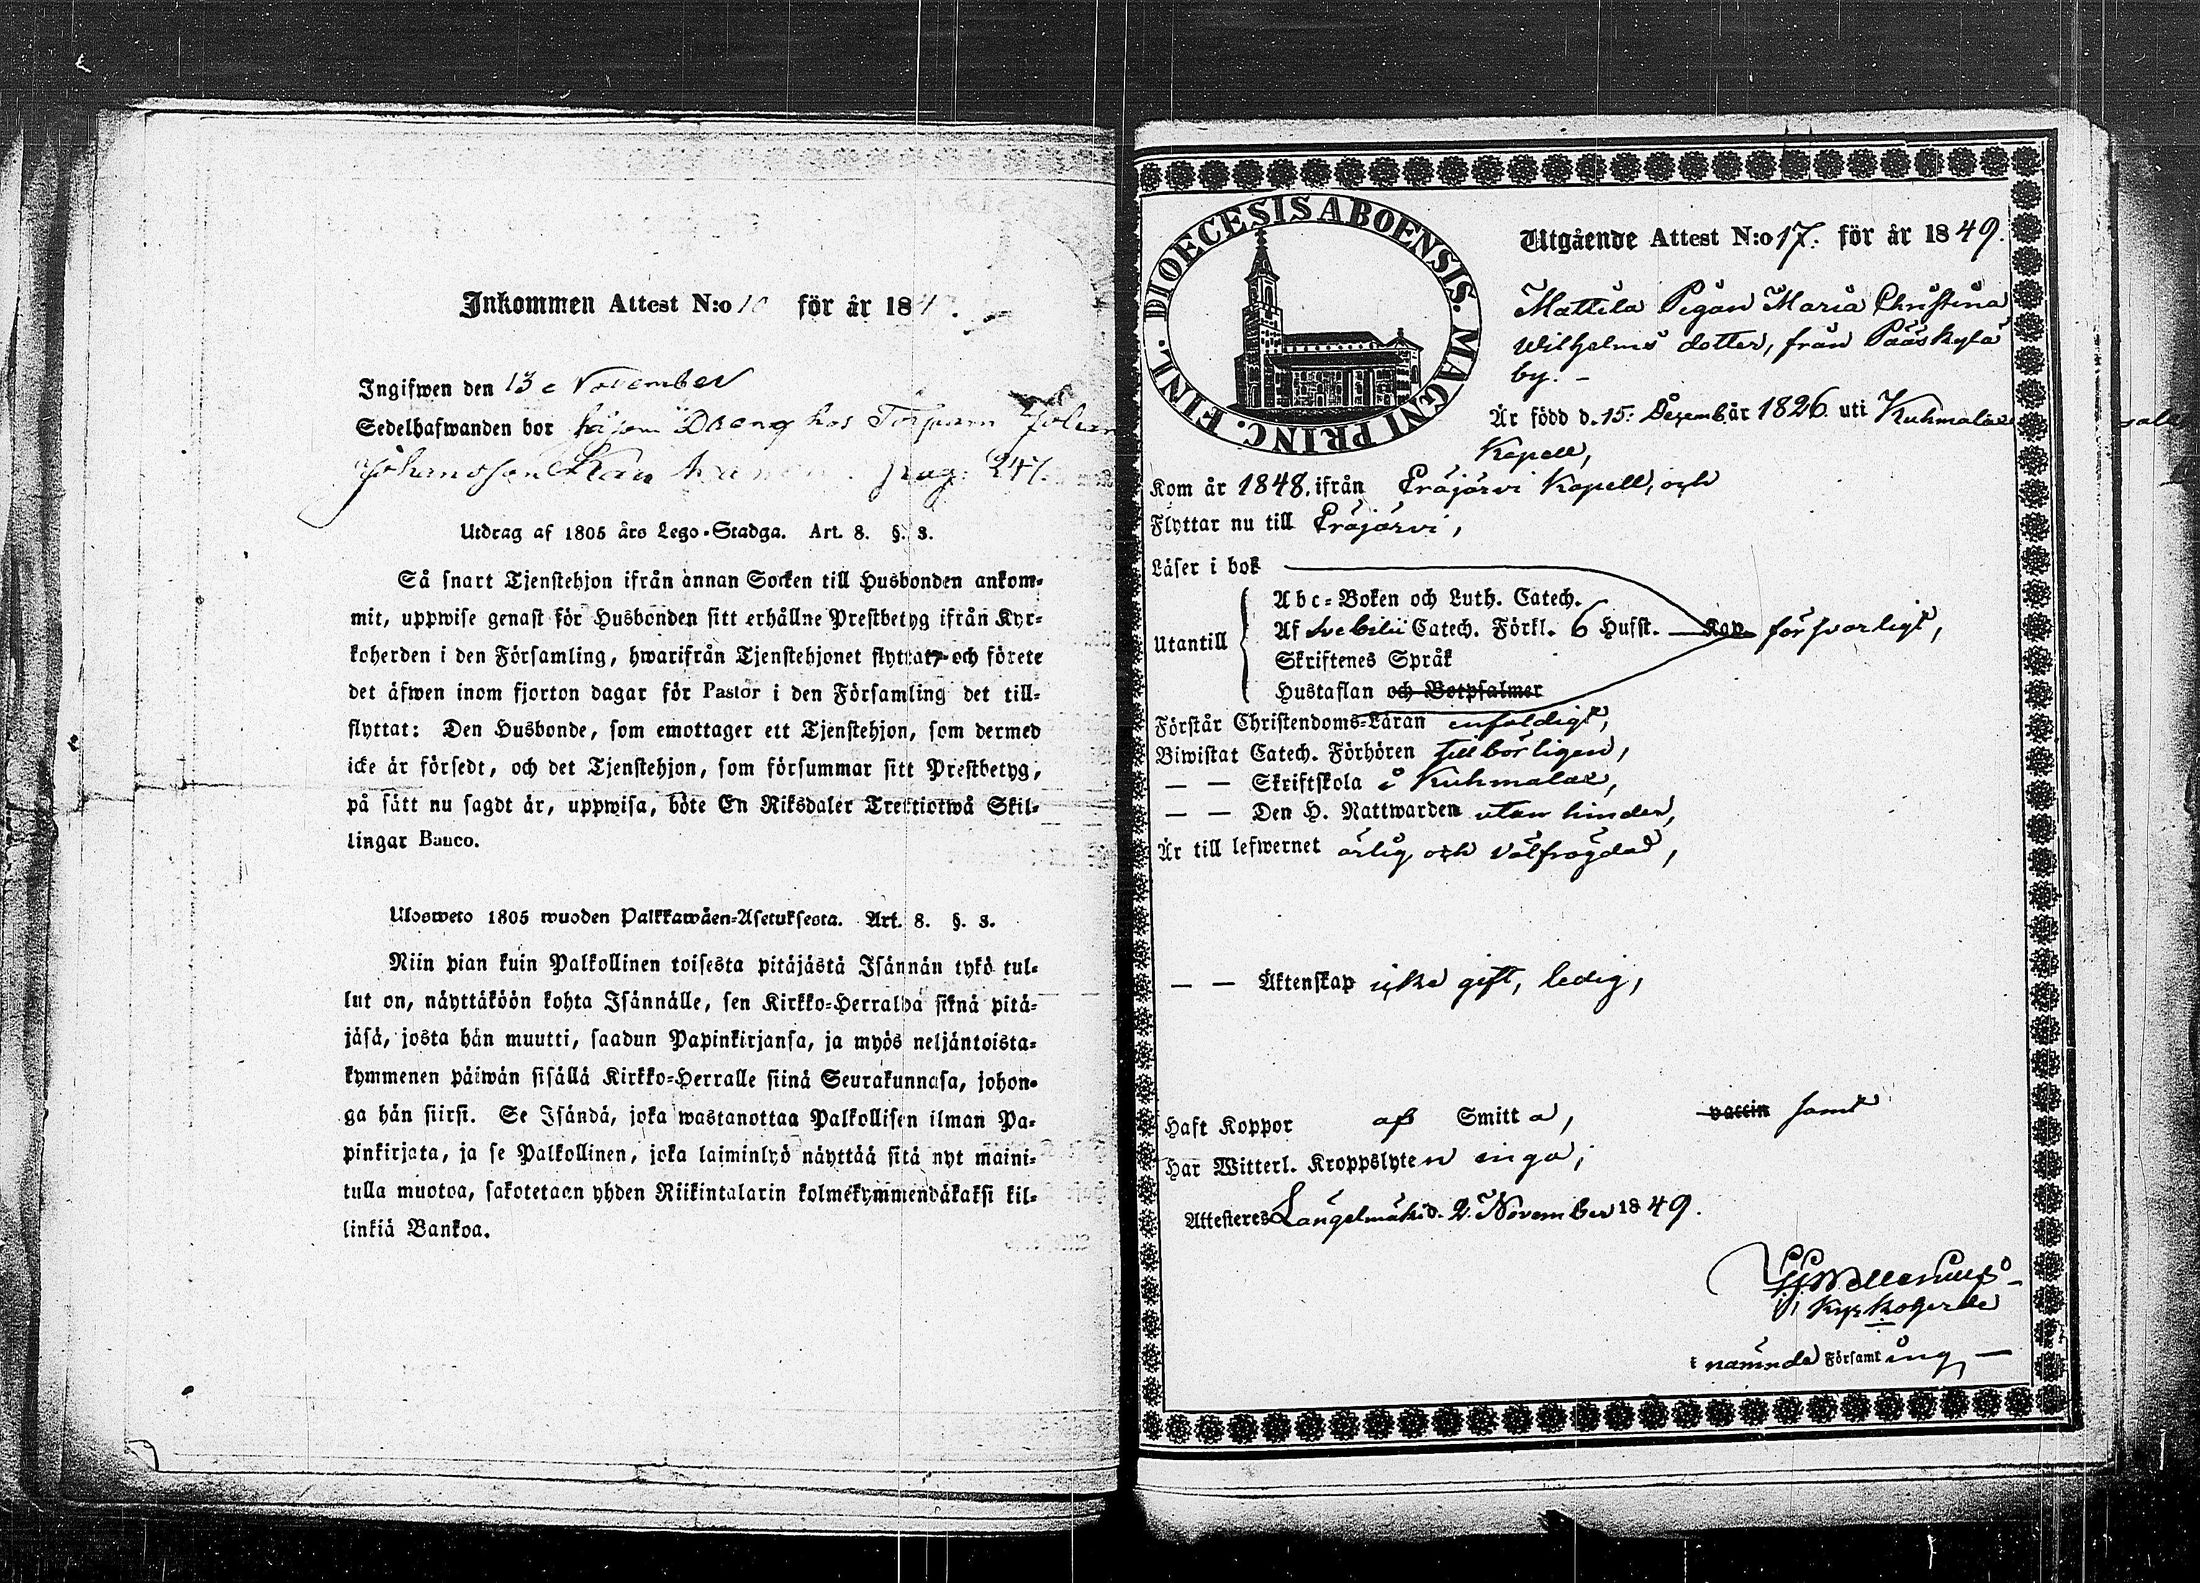 Inkommen Attest N:o 10 för år 184 .
Ingifwen den 13 e November
Sedelhafwanden bor här som Dräng hos Torparn Johan
Johansson pag. 247.
Utdrag af 1805 års Lego-Stadga. Art. 8. §. 3.
Så snart Tjenstehjon ifrån annan Socken till Husbonden ankom-
mit, uppwise genast för Husbonden sitt erhållne Prestbetyg ifrån Kyr-
koherden i den Församling, hwarifrån Tjenstehjonet flyttat, och förete
det äfwen inom fjorton dagar för Pastor i den Församling det till-
flyttat: Den Husbonde, som emottager ett Tjenstehjon, som dermed
icke är försedt, och det Tjenstehjon, som försummar sitt Prestbetyg,
på sätt nu sagdt är, uppwisa, böte En Riksdaler Trettiotwå Skil-
lingar Banco.
Ulosweto 1805 wuoden Palkkawäen-Asetuksesta. Art. 8. §. 3.
Niin pian kuin Palkollinen toisesta pitäjästä Isännän tykö tul-
lut on, näyttäköön kohta Isännälle, sen Kirkko-Herralda siinä pitä-
jäsä, josta hän muutti, saadun Papinkirjansa, ja myös neljäntoista-
kymmenen päiwän sisällä Kirkko-Herralle siinä Seurakunnasa, johon-
ga hän siirsi. Se Isändä, joka wastanottaa Palkollisen ilman Pa-
pinkirjata, ja se Palkollinen, joka laiminlyö näyttää sitä nyt maini-
tulla muotoa, sakotetaan yhden Riikintalarin kolmekymmendäkaksi kil-
linkiä Bankoa.
DIOECESIS ABOENSIS. MAGNI PRINC. FINL.
Utgående Attest N:o 17. för år 1849.
Mattila Pigan Maria Christina
Wilhelms dotter, från Pääskylä
by. -
Är född d. 15: Decemb. år 1826 uti Kuhmalax
Kapell,
Kom år 1848. ifrån Eräjärvi Kapell, och
Flyttar nu till Eräjärvi,
Läser i bok
Utantill
Abc-Boken och Luth. Catech.
Af Svebilii Catech. Förkl. 6 Hufst. — Kap. försvarligt,
Skriftenes Språk
Hustaflan och Botpsalmer
Förstår Christendoms-Läran enfaldigt,
Biwistat Catech. Förhören tillbörligen,
— — Skriftskola i Kuhmalax,
— — Den H. Nattwarden utan hinder,
Är till lefwernet ärlig och välfrägdad,
— — Äktenskap icke gift, ledig,
Haft Koppor af Smitta, vaccin samt
Har Witterl. Kroppslyten inga;
Attesteres Längelmäki d. 2. November 1849.
Kyrkoherde
i nämnde Församling —